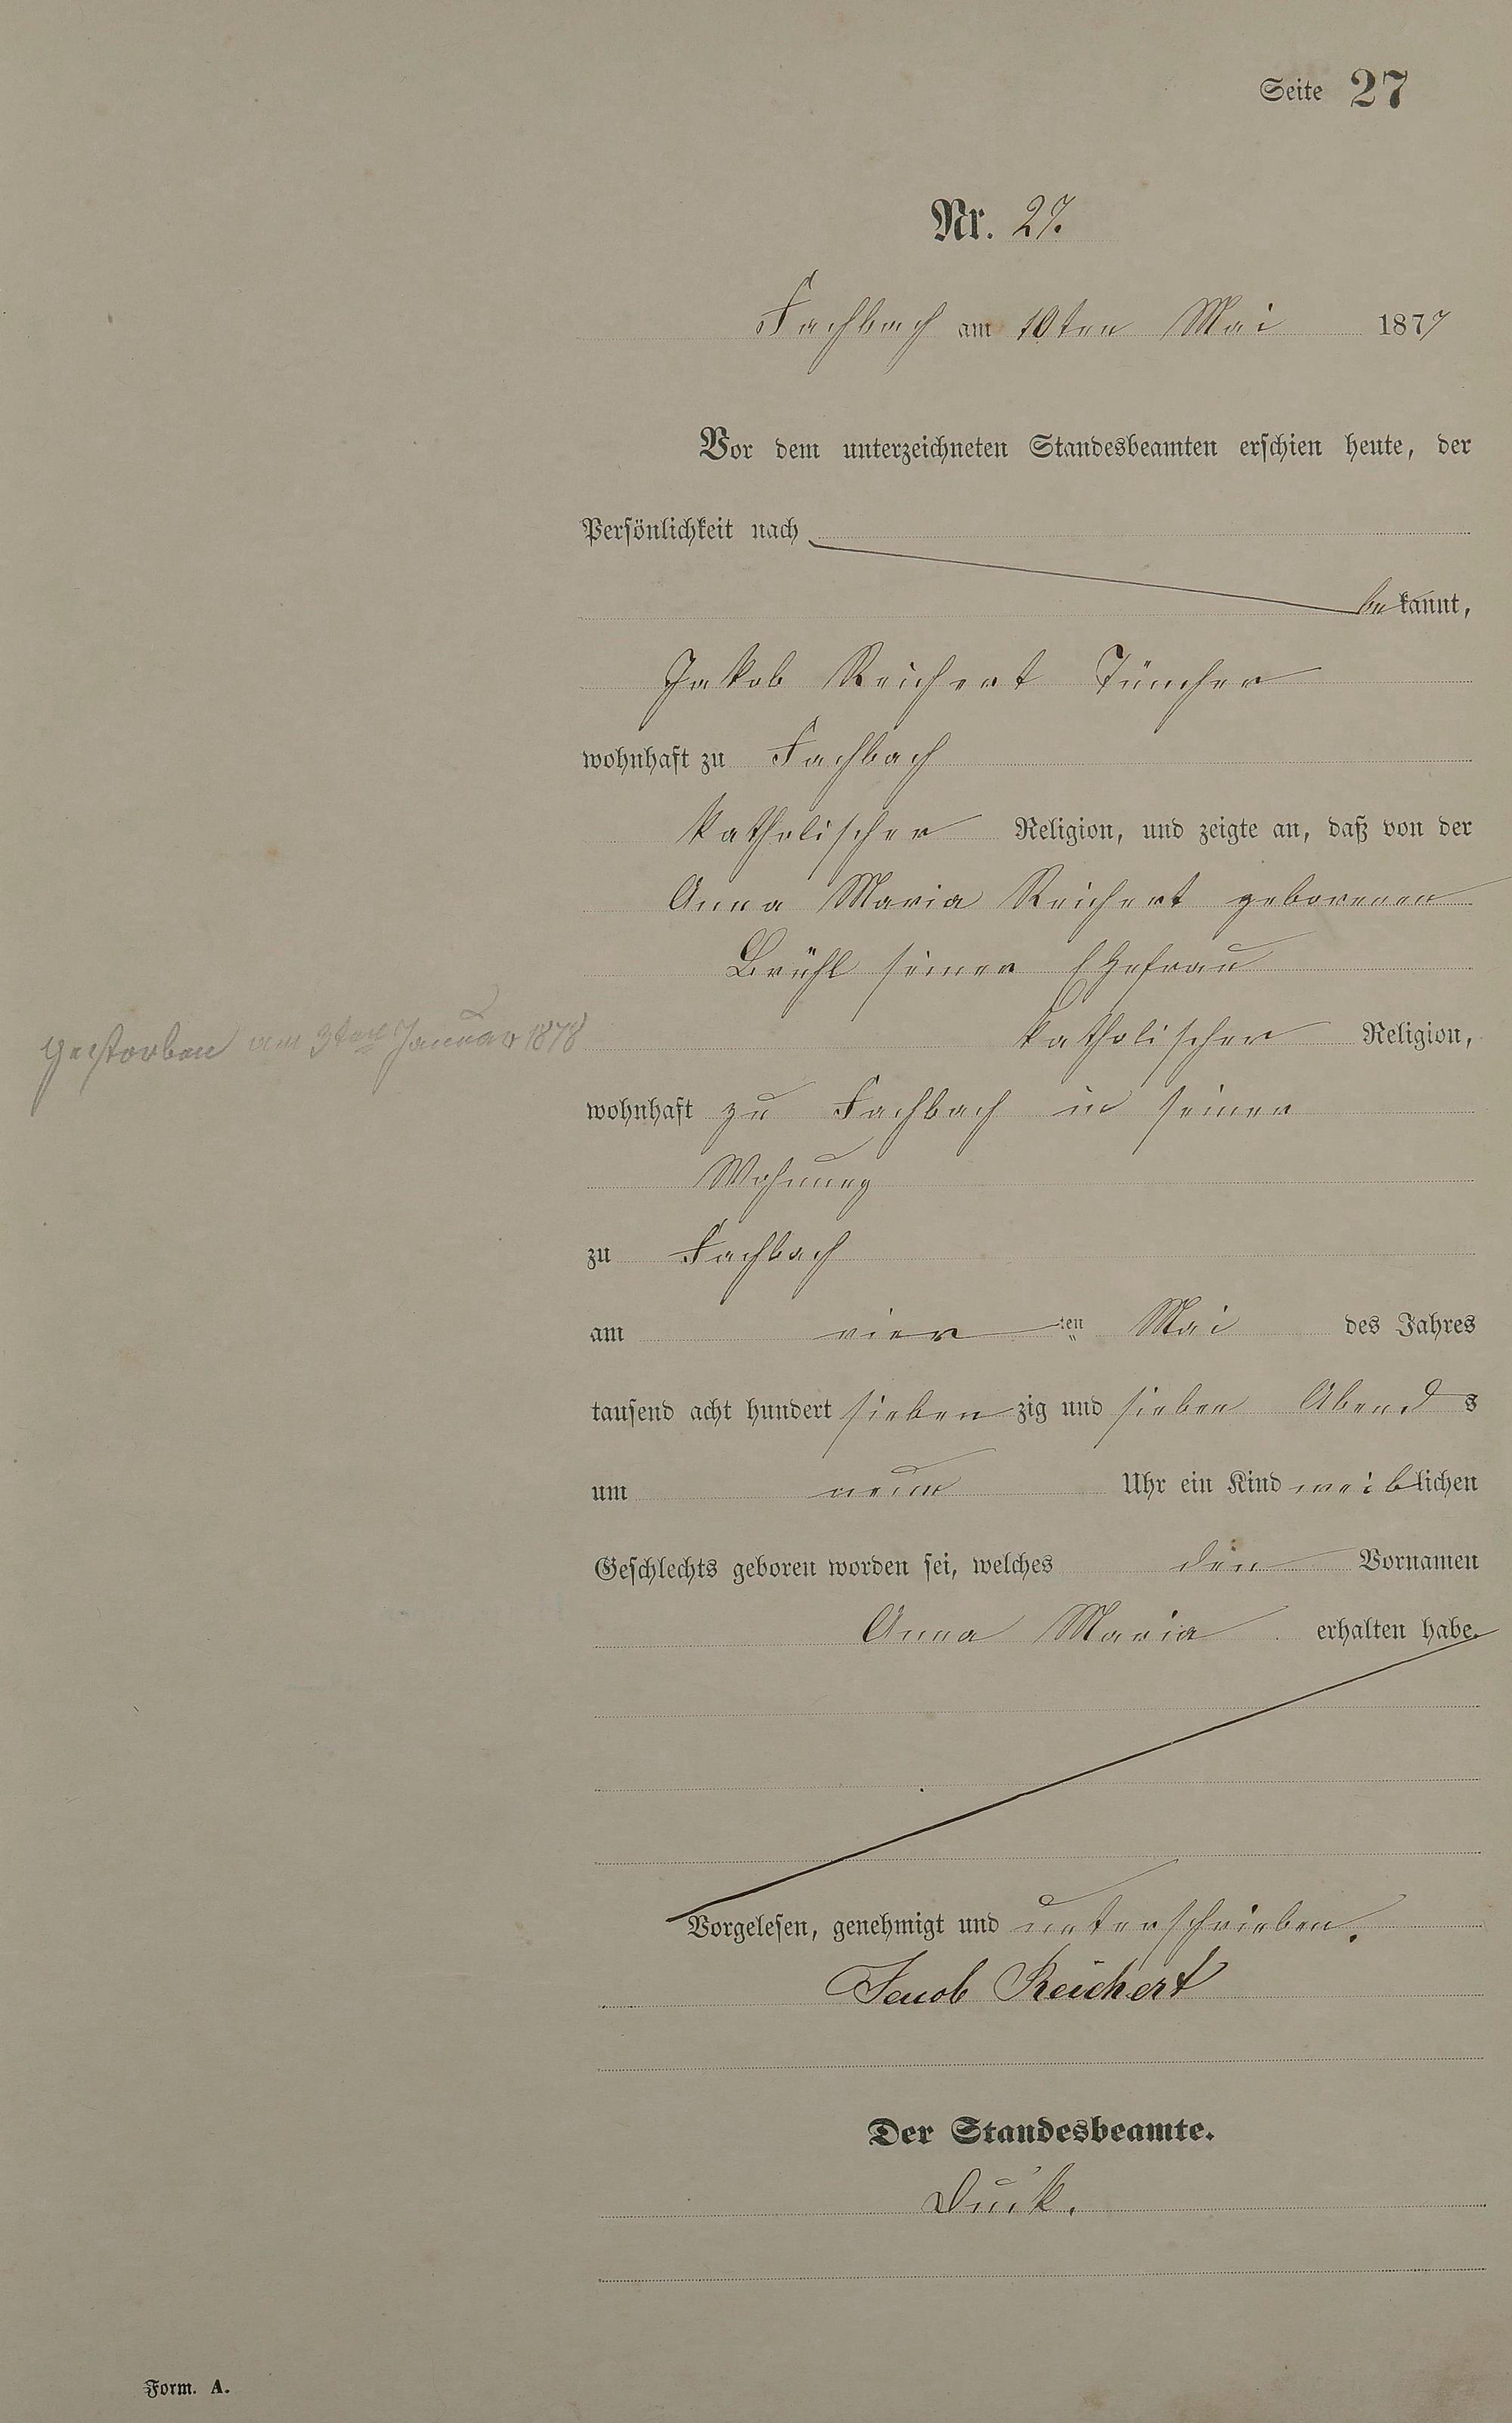 Seite 27
Nr. 27.
Fachbach am 10ten Mai 1877
Vor dem unterzeichneten Standesbeamten erschien heute, der
Persönlichkeit nach
bekannt,
Jakob Reichert Tüncher
wohnhaft zu Fachbach
katholischer Religion, und zeigte an, daß von der
Anna Maria Reichert geborenen
Brühl seiner Ehefrau
katholischer Religion,
gestorben am 3ten Januar 1878
wohnhaft zu Fachbach in seiner
Wohnung
zu Fachbach
am vier ten Mai des Jahres
tausend acht hundert sieben zig und sieben Abend s
um neun Uhr ein Kind weiblichen
Geschlechts geboren worden sei, welches den Vornamen
Anna Maria erhalten habe.
Vorgelesen, genehmigt und unterschrieben.
Jacob Reichert
Der Standesbeamte.
Form. A.